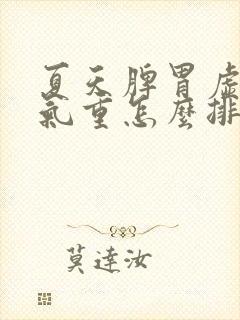 夏天脾胃虛
氣重怎麼排
莫達汝